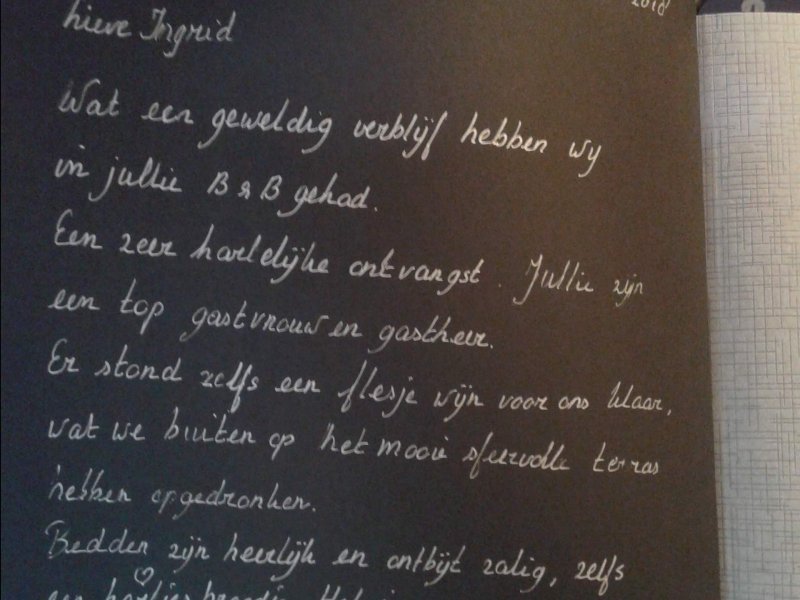 2018
lieve Ingrid
Wat een geweldig verblijf hebben wy
in jullie B & B gehad.
Een zeer hartelijke ontvangst. Jullie zijn
een top gastvrouw en gastheer.
Er stond zelfs een flesje wijn voor ons klaar,
wat we buiten op het mooie sfeervolle terras
hebben opgedronken.
Bedden zijn heerlijk en ontbijt zalig, zelfs
een hartjes